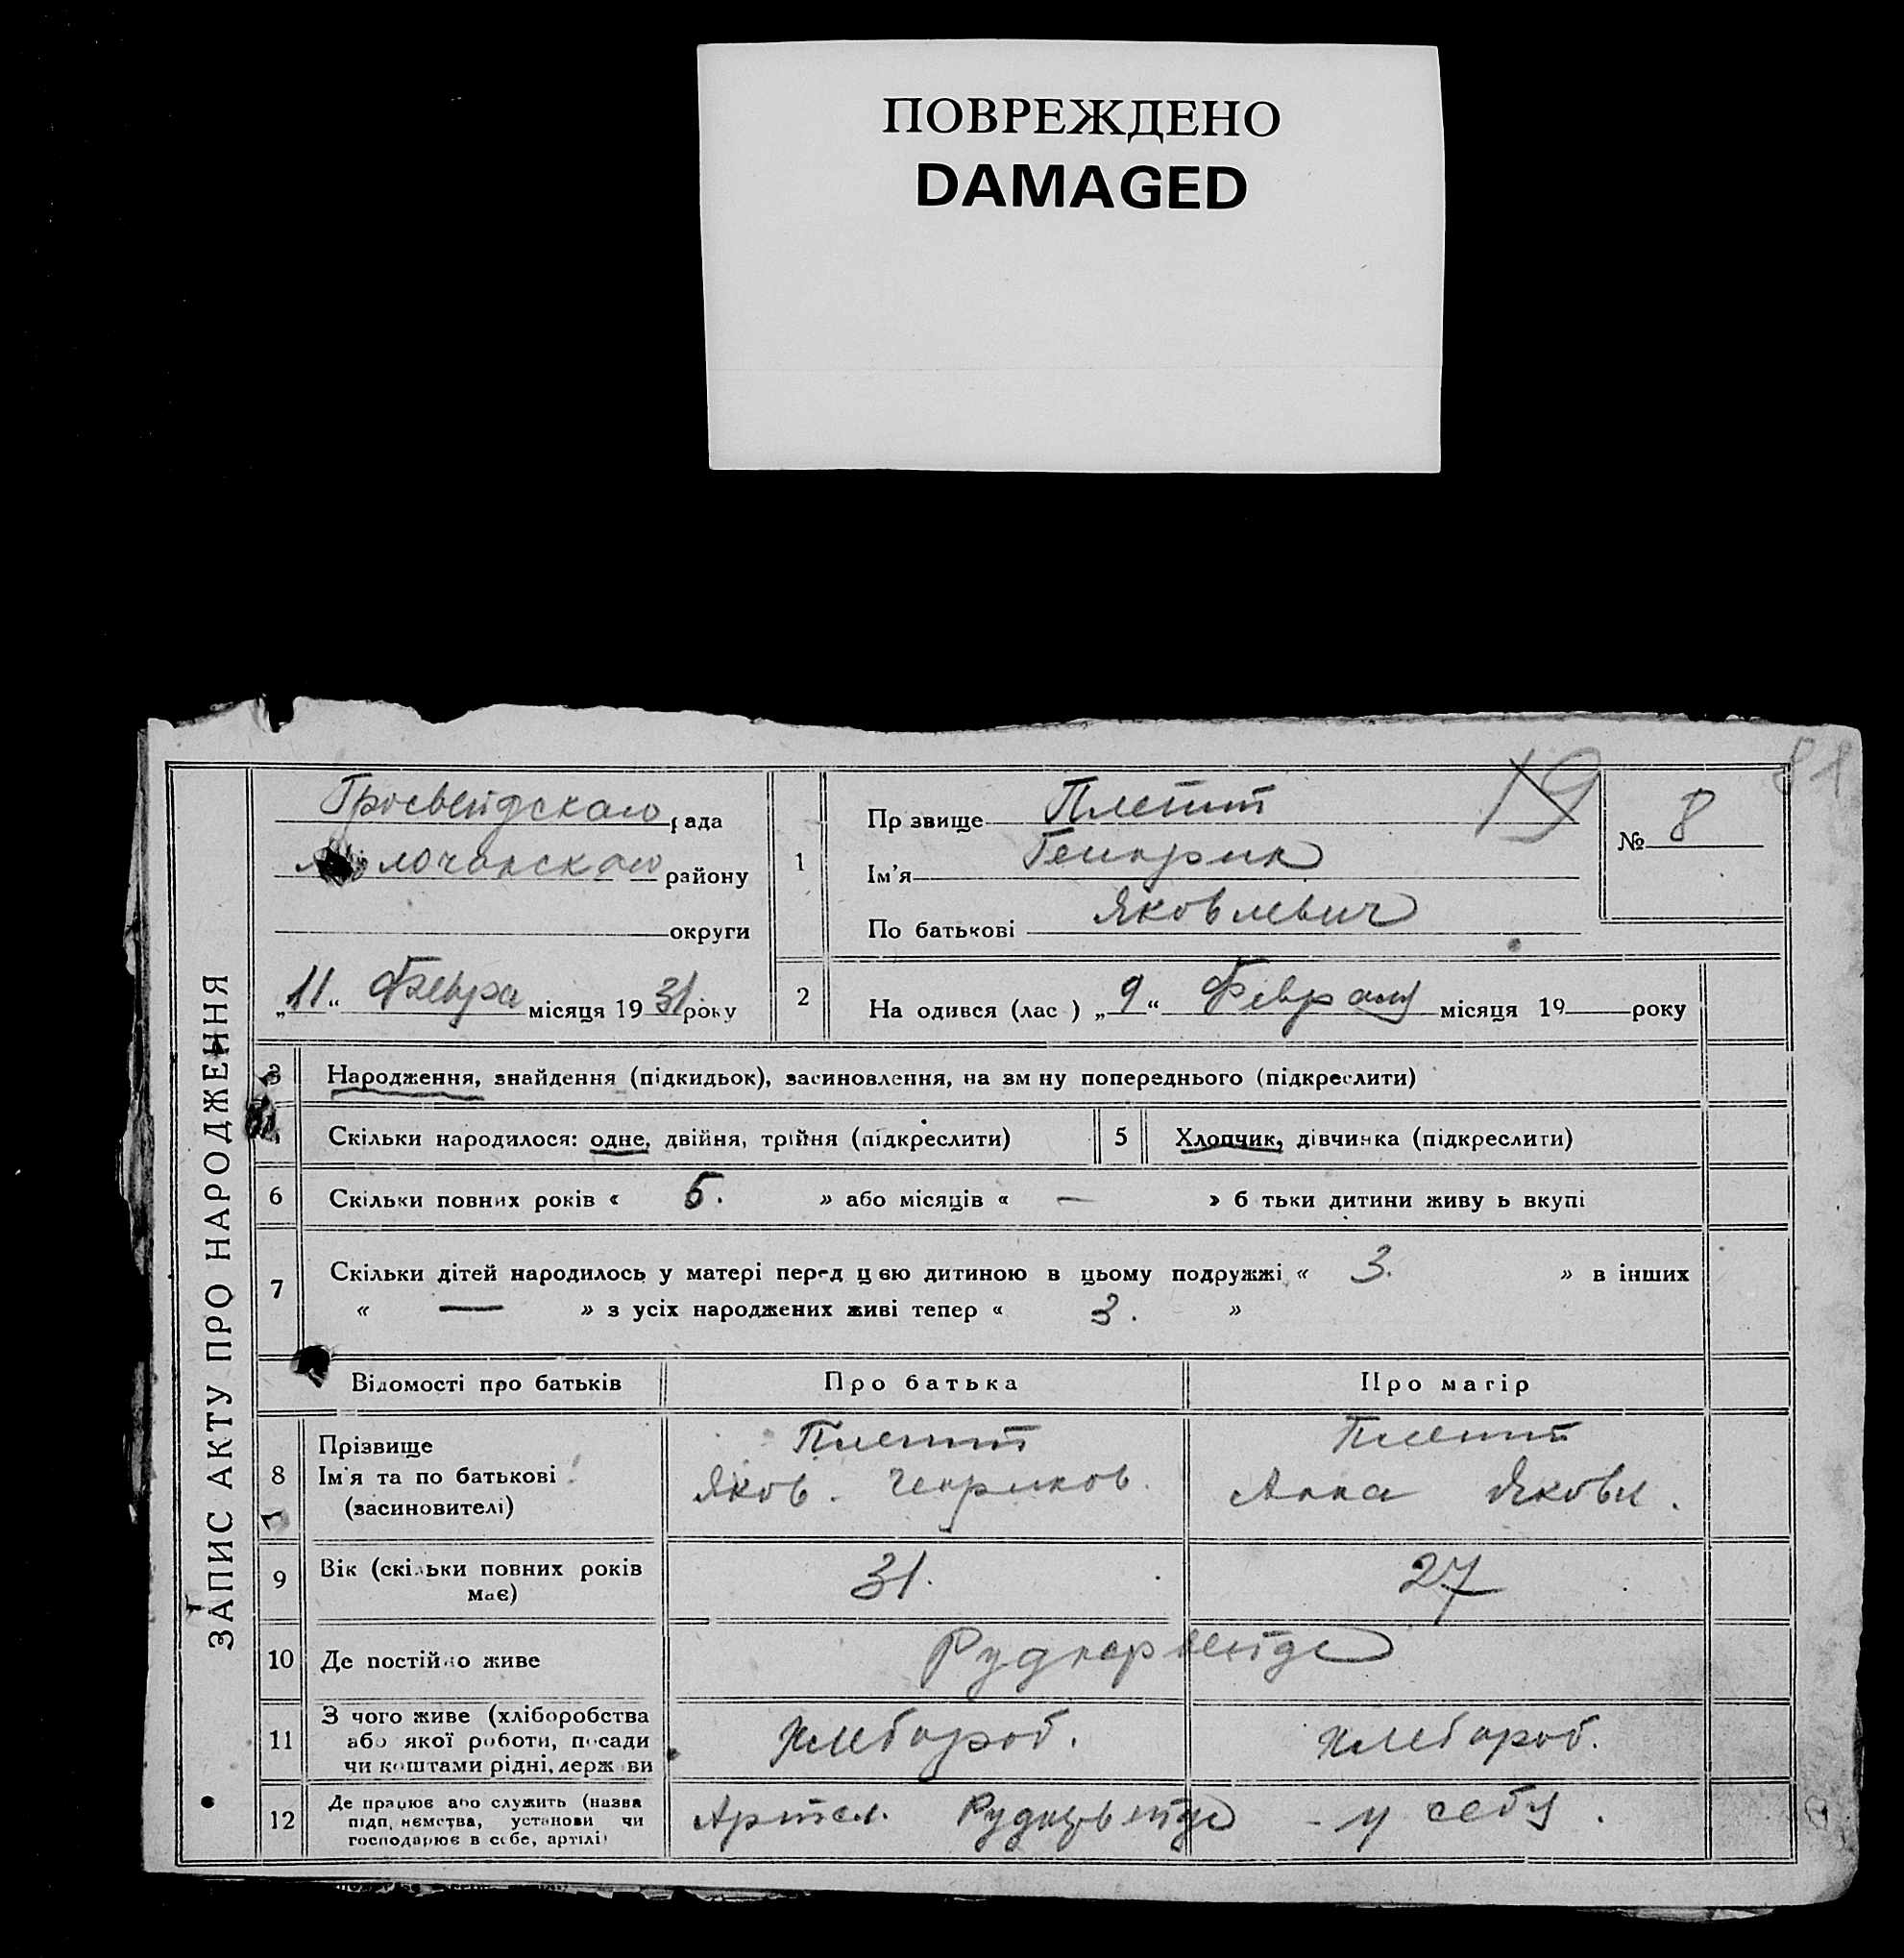 ПОВРЕЖДЕНО
DAMAGED
81
ЗАПИС АКТУ ПРО НАРОДЖЕННЯ
рада
лочанского району
округи
„11“ Февра місяця 1931 року
1
Пр звище Плетт
19
№ 8
Ім'я Генрик
По батькові Яковлевич
2
На одився (лас ) „9“ Февраля місяця 19 року
3
Народження, знайдення (підкидьок), засиновлення, на зм ну попереднього (підкреслити)
Скільки народилося: одне, двійня, трійня (підкреслити)
5
Хлопчик, дівчинка (підкреслити)
6
Скільки повних років « 5. » або місяців « — » б тьки дитини живу ь вкупі
7
Скільки дітей народилось у матері перед ц єю дитиною в цьому подружжі « 3. » в інших
« — » з усіх народжених живі тепер « 3. »
Відомості про батьків
Про батька
Про матір
8
Прізвище
Ім'я та по батькові
(засиновителі)
Плетт
Яков. Генриков.
Плетт
Анна Яковл.
9
Вік (скільки повних років
має)
31.
27
10
Де постійно живе
Руднервейде
11
З чого живе (хліборобства
або якої роботи, посади
чи коштами рідні, держ ви
Хлебороб.
Хлебороб.
12
Де працює або служить (назва
підп, немства, установи чи
господарює в себе, артілі)
Артел. Руднервейде
- у себя.